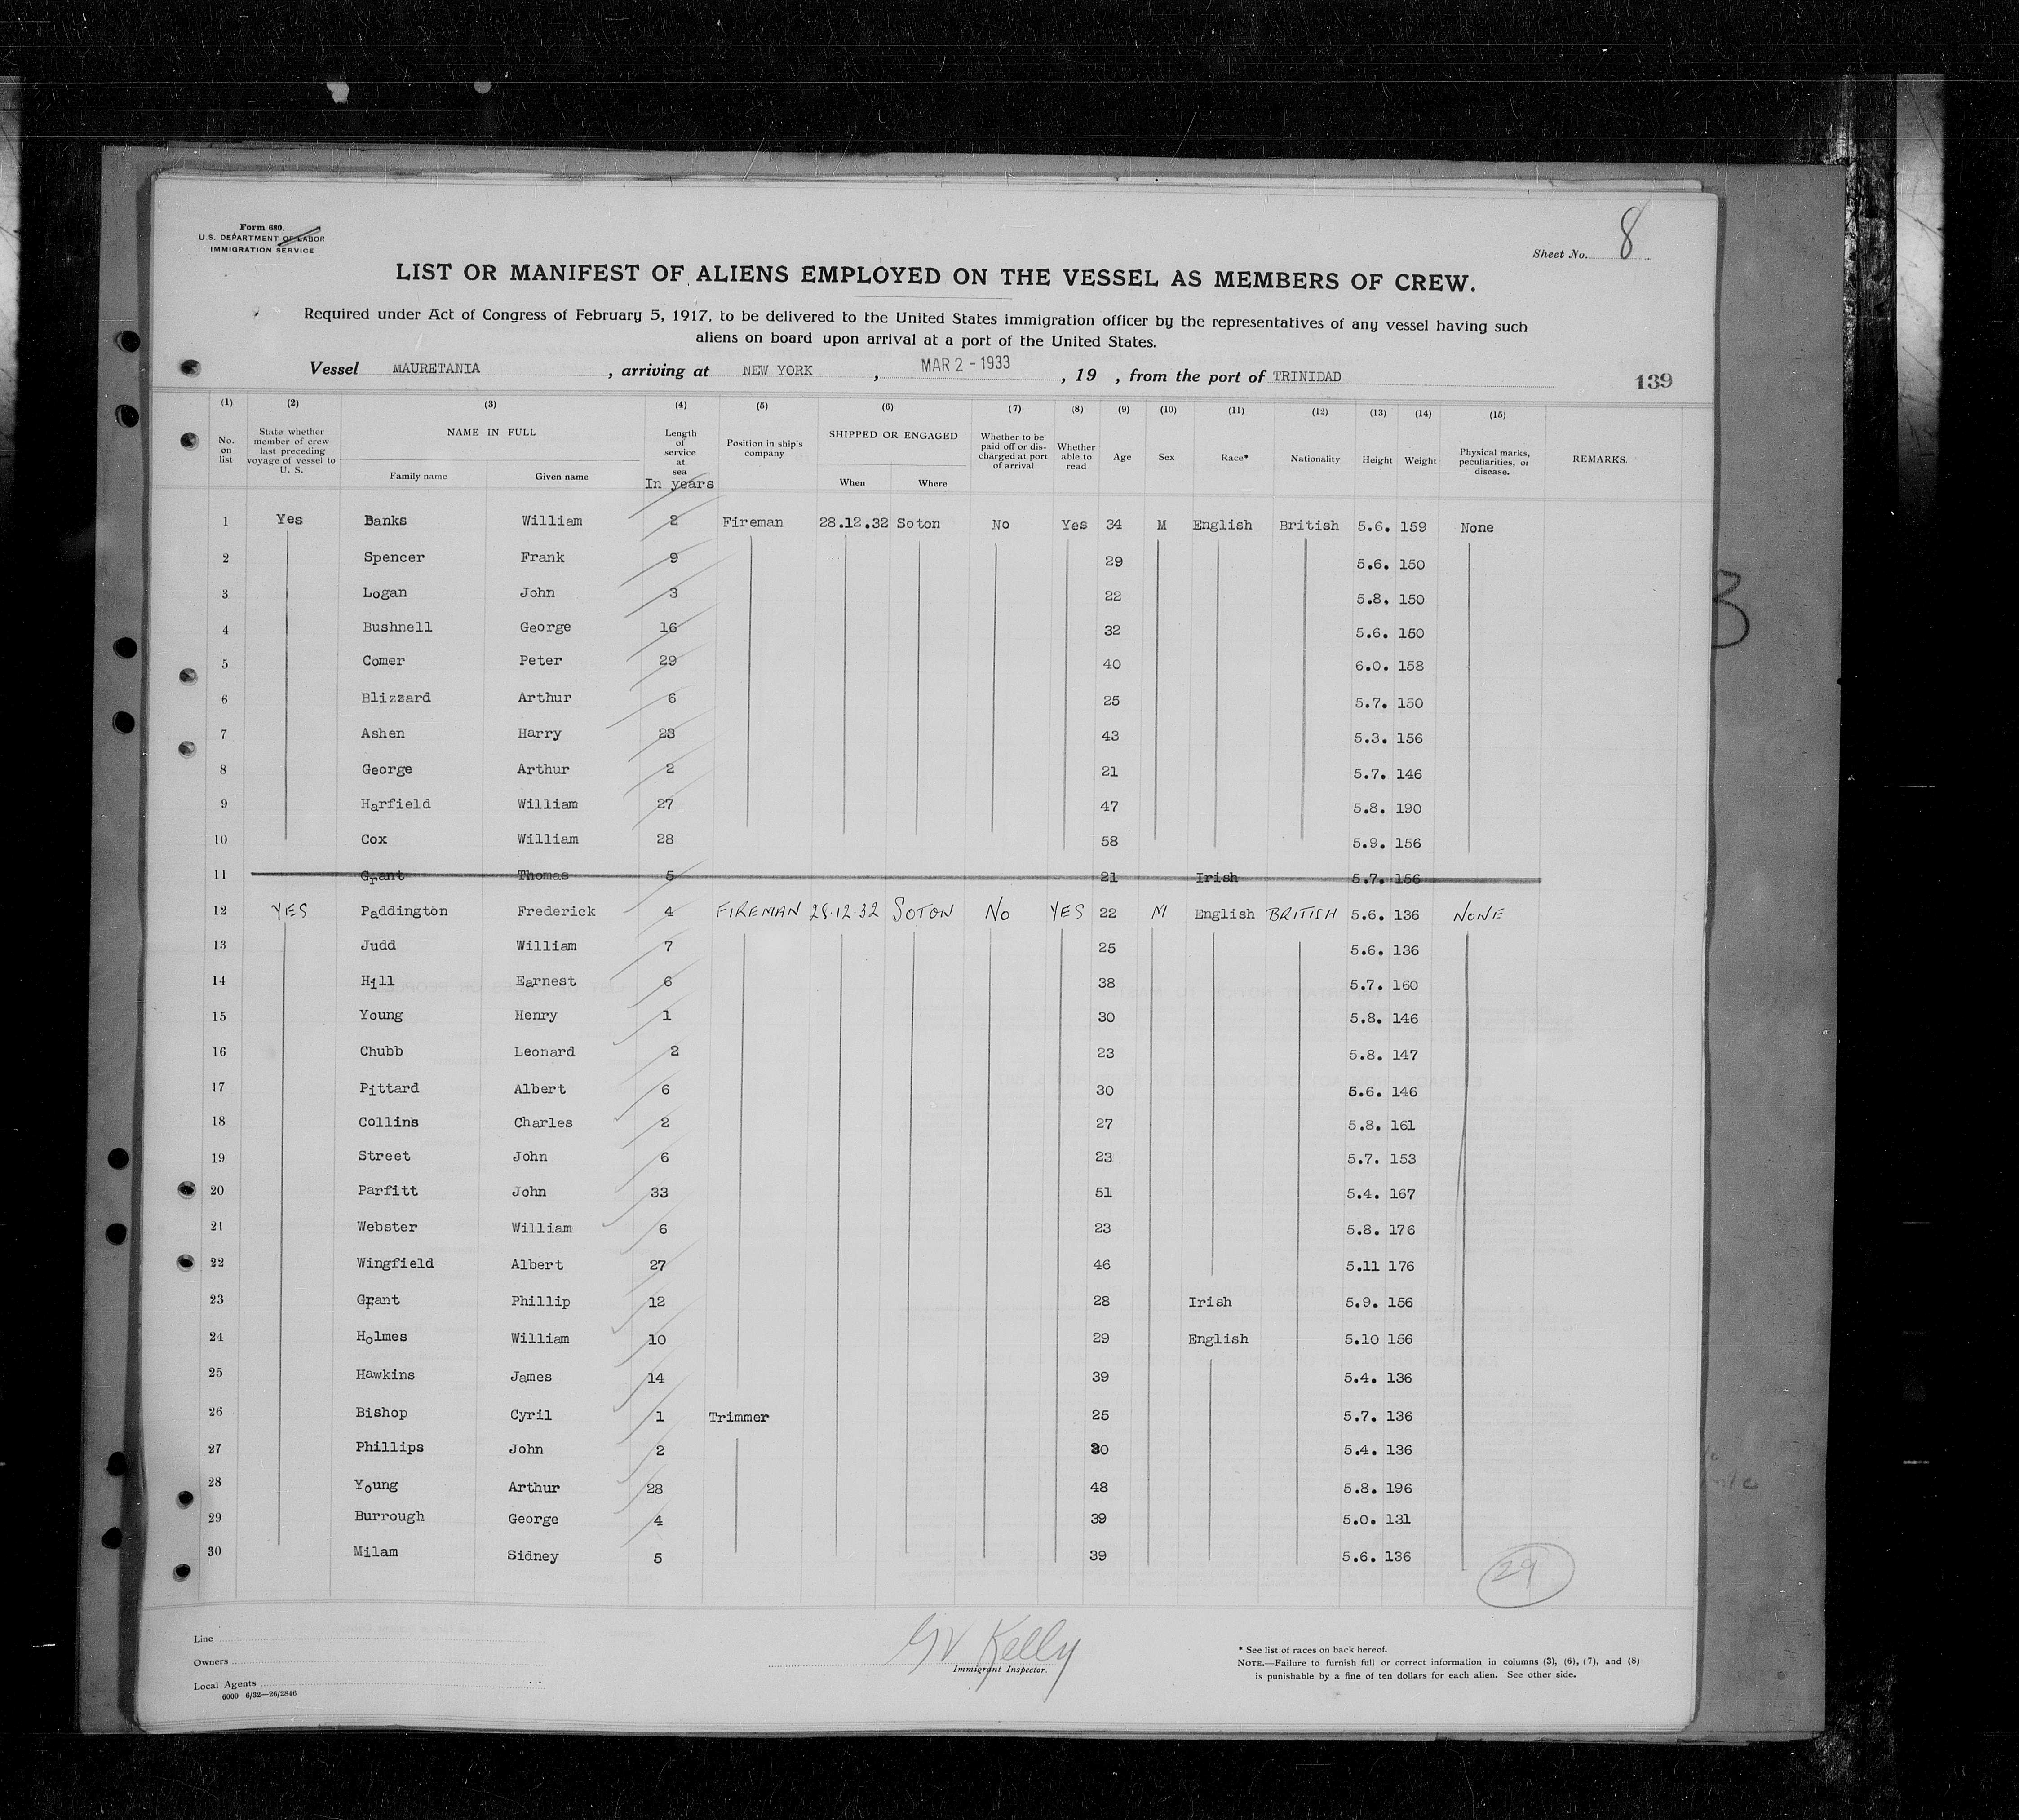 Form 680.
U.S. DEPARTMENT OF LABOR
IMMIGRATION SERVICE
Sheet No. 8
LIST OR MANIFEST OF ALIENS EMPLOYED ON THE VESSEL AS MEMBERS OF CREW.
Required under Act of Congress of February 5, 1917, to be delivered to the United States immigration officer by the representatives of any vessel having such
aliens on board upon arrival at a port of the United States.
Vessel MAURETANIA , arriving at NEW YORK , MAR 2 - 1933 , 19 , from the port of TRINIDAD
139
(1) (2) (3) (4) (5) (6) (7) (8) (9) (10) (11) (12) (13) (14) (15)
No. on list State whether member of crew last preceding voyage of vessel to U. S. NAME IN FULL Family name Given name Length of service at sea In years Position in ship's company SHIPPED OR ENGAGED When Where Whether to be paid off or discharged at port of arrival Whether able to read Age Sex Race* Nationality Height Weight Physical marks, peculiarities, or disease. REMARKS.
1 Yes Banks William 2 Fireman 28.12.32 Soton No Yes 34 M English British 5.6. 159 None
2 Spencer Frank 9 29 5.6. 150
3 Logan John 3 22 5.8. 150
4 Bushnell George 16 32 5.6. 150
5 Comer Peter 29 40 6.0. 158
6 Blizzard Arthur 6 25 5.7. 150
7 Ashen Harry 23 43 5.3. 156
8 George Arthur 2 21 5.7. 146
9 Harfield William 27 47 5.8. 190
10 Cox William 28 58 5.9. 156
11 Grant Thomas 5 21 Irish 5.7. 156
12 YES Paddington Frederick 4 FIREMAN 28.12.32 SOTON NO YES 22 M English BRITISH 5.6. 136 NONE
13 Judd William 7 25 5.6. 136
14 Hill Earnest 6 38 5.7. 160
15 Young Henry 1 30 5.8. 146
16 Chubb Leonard 2 23 5.8. 147
17 Pittard Albert 6 30 5.6. 146
18 Collins Charles 2 27 5.8. 161
19 Street John 6 23 5.7. 153
20 Parfitt John 33 51 5.4. 167
21 Webster William 6 23 5.8. 176
22 Wingfield Albert 27 46 5.11 176
23 Grant Phillip 12 28 Irish 5.9. 156
24 Holmes William 10 29 English 5.10 156
25 Hawkins James 14 39 5.4. 136
26 Bishop Cyril 1 Trimmer 25 5.7. 136
27 Phillips John 2 30 5.4. 136
28 Young Arthur 28 48 5.8. 196
29 Burrough George 4 39 5.0. 131
30 Milam Sidney 5 39 5.6. 136
29
Line
Owners
Local Agents
6000 6/32—26/2846
GV Kelly
Immigrant Inspector.
* See list of races on back hereof.
NOTE.—Failure to furnish full or correct information in columns (3), (6), (7), and (8)
is punishable by a fine of ten dollars for each alien. See other side.